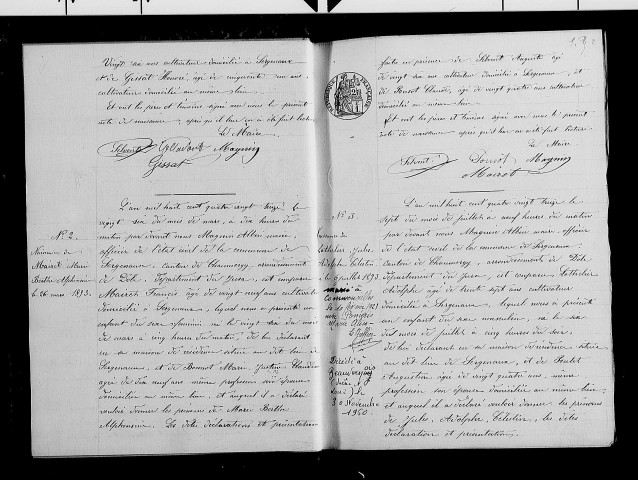 Vingt six ans cultivateur domicilié à Sergenaux
et de Gessat Honoré, âgé de cinquante un ans,
cultivateur domicilié au même lieu.
Et ont les père et témoins signé avec nous le présent
acte de naissance, après qu'il leur en a été fait lecture
Le Maire
Magnin
Gessat
N° 2.
Naissance de
Mairet Marie
Berthe Alphonsine
le 26 mars 1893.
L'an mil huit cent quatre vingt treize le
vingt six du mois de mars, à dix heures du
matin par devant nous Magnin Albin maire,
officier de l'état civil de la commune de
Sergenaux, Canton de Chaumergy, arrondissement
de Dole, Département du Jura, est comparu
Mairet Francis âgé de vingt neuf ans cultivateur
domicilié à Sergenaux, lequel nous a présenté un
enfant du sexe féminin né le vingt six du mois
de mars à cinq heures du matin, de lui déclarant
en sa maison de résidence située au dit lieu de
Sergenaux, et de Bonnot Marie
âgée de dix neuf ans même profession son épouse
domiciliée au même lieu, et auquel il a déclaré
vouloir donner les prénoms de Marie Berthe
Alphonsine. Les dites déclarations et présentation
faite en présence de Schmit Auguste âgé
de vingt six ans cultivateur domicilié à Sergenaux, et
de Claude, âgé de vingt quatre ans cultivateur
domicilié au même lieu.
Et ont les père et témoins signé avec nous le présent
acte de naissance après qu'il leur en a été fait lecture
Le Maire
Schmit Magnin
Mairet
N° 3.
Naissance de
Jules
Adolphe Célestin
le 6 juillet 1893.
marié à
Décédé à
30 Novembre
1960.
L'an mil huit cent quatre vingt treize le
sept du mois de juillet à neuf heures du matin
par devant nous Magnin Albin maire, officier
de l'état civil de la commune de Sergenaux,
Canton de Chaumergy, arrondissement de Dole
Département du Jura, est comparu
Adolphe âgé de trente sept ans cultivateur
domicilié à Sergenaux, lequel nous a présenté
un enfant du sexe masculin, né le six
du mois de juillet à cinq heures du soir,
de lui déclarant en sa maison de résidence située
au dit lieu de Sergenaux, et de
Augustine âgée de vingt quatre ans, même
profession son épouse domiciliée au même lieu,
et auquel il a déclaré vouloir donner les prénoms
de Jules, Adolphe, Célestin, les dites
déclaration et présentation.